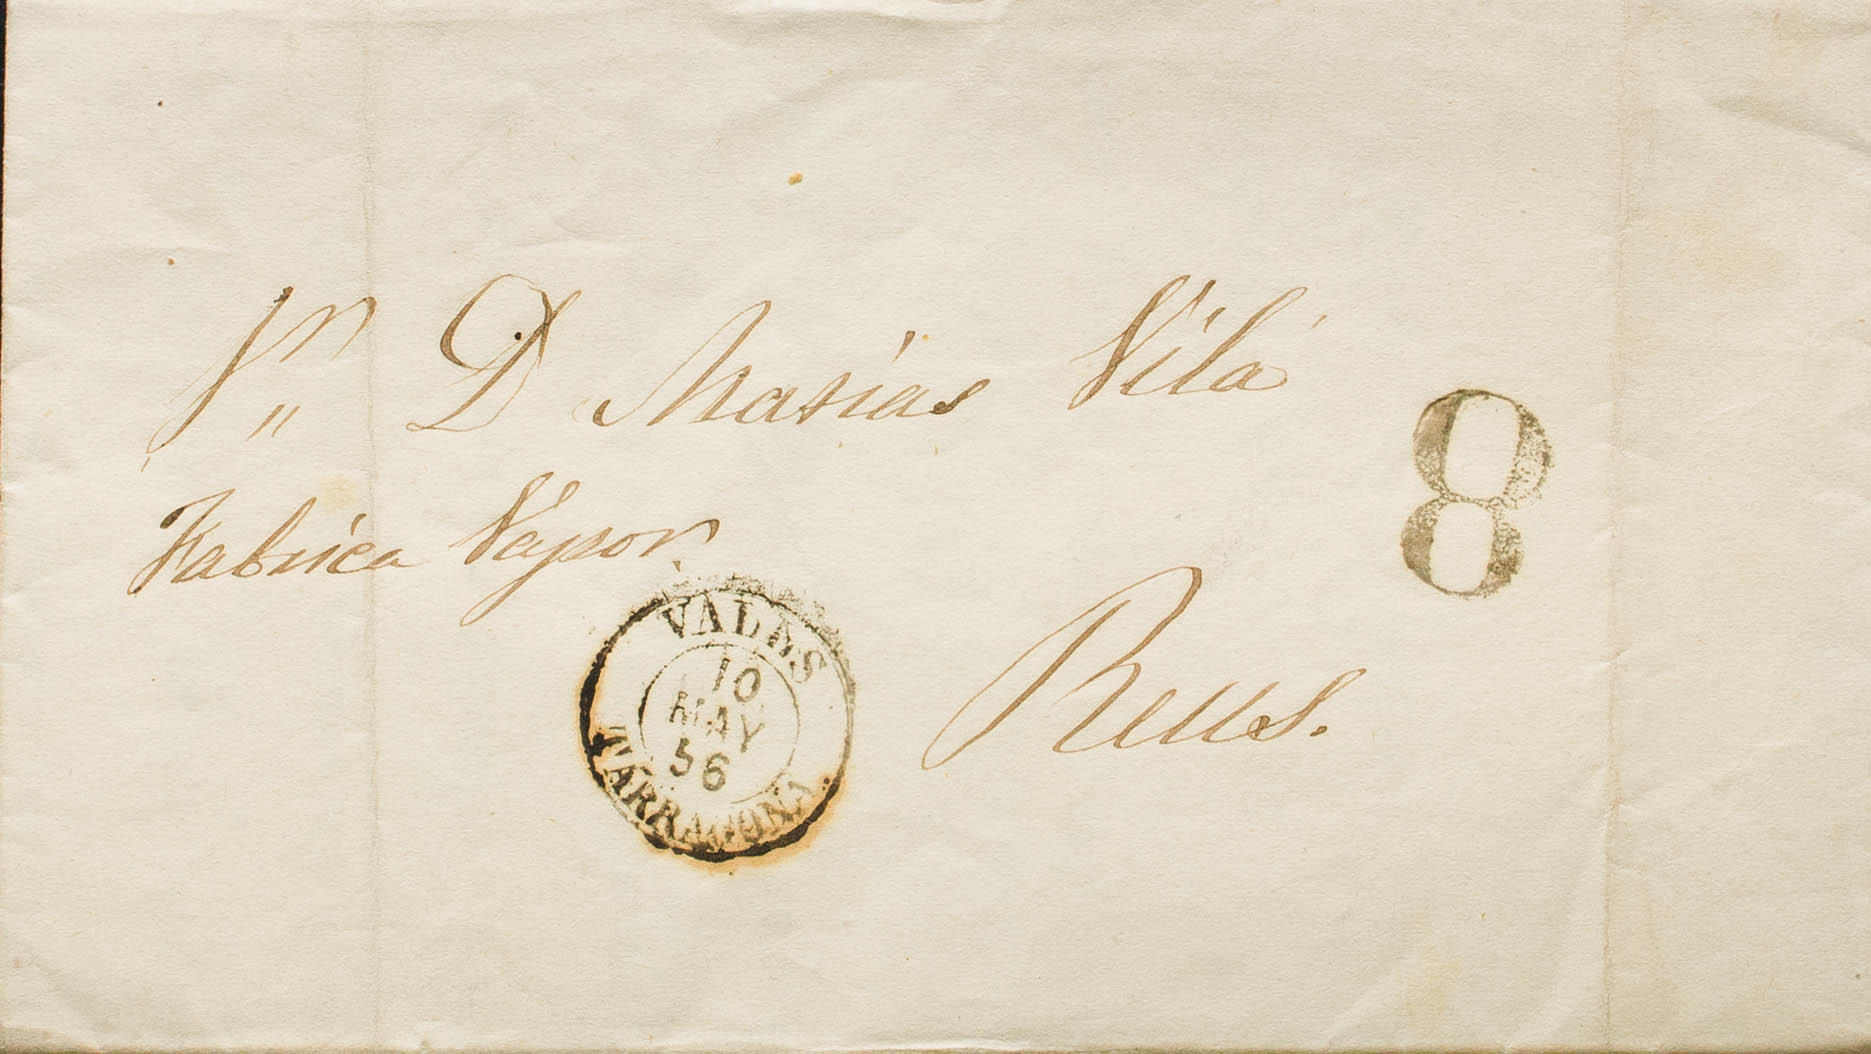 Sr D Masias Vilá
8
Fabrica Vapor.
VALLS
10
MAY
56
TARRAGONA.
Reus.